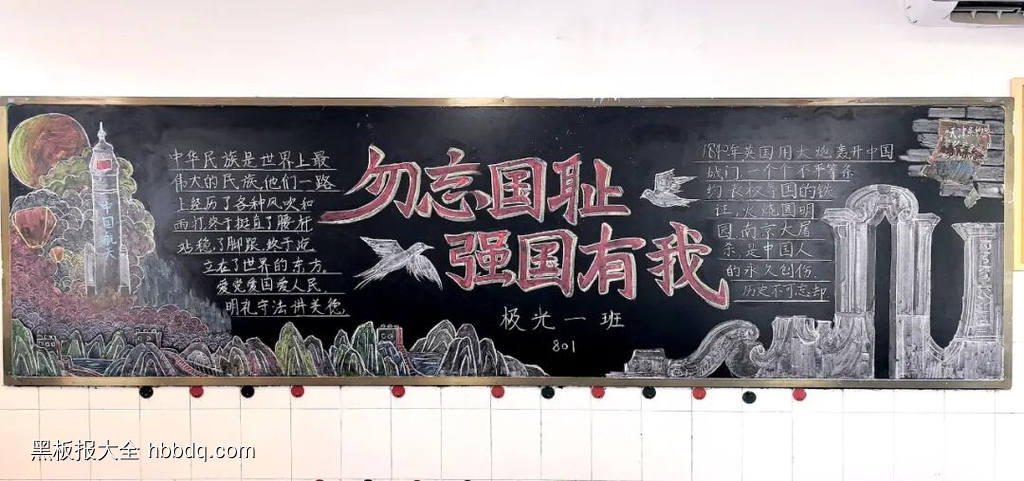 中华民族是世界上最
伟大的民族,他们一路
上经历了各种风吹和
雨打,终于挺直了腰杆
站稳了脚跟,终于屹
立在了世界的东方。
爱党爱国爱人民,
明礼守法讲美德,
中国航天
勿忘国耻
强国有我
极光一班
801
1840年英国用大炮轰开中国
战门一个个不平等条
约丧权辱国的铁
证,火烧圆明
园,南京大屠
杀是中国人
的永久创伤.
历史不可忘却
黑板报大全 hbbdq.com